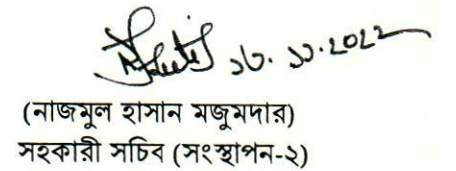 ১৩.১১.২০২২
(নাজমুল হাসান মজুমদার)
সহকারী সচিব (সংস্থাপন-২)